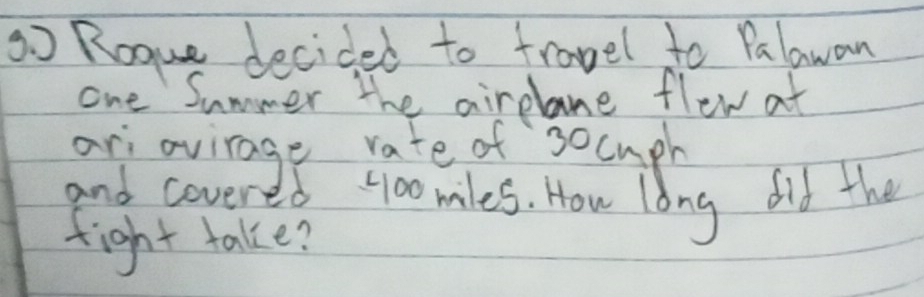 3.) Roque decided to travel to Palawan
one Summer the airplane flew at
ari avirage rate of 30cmph
and covered 400 miles. How long did the
fight take?